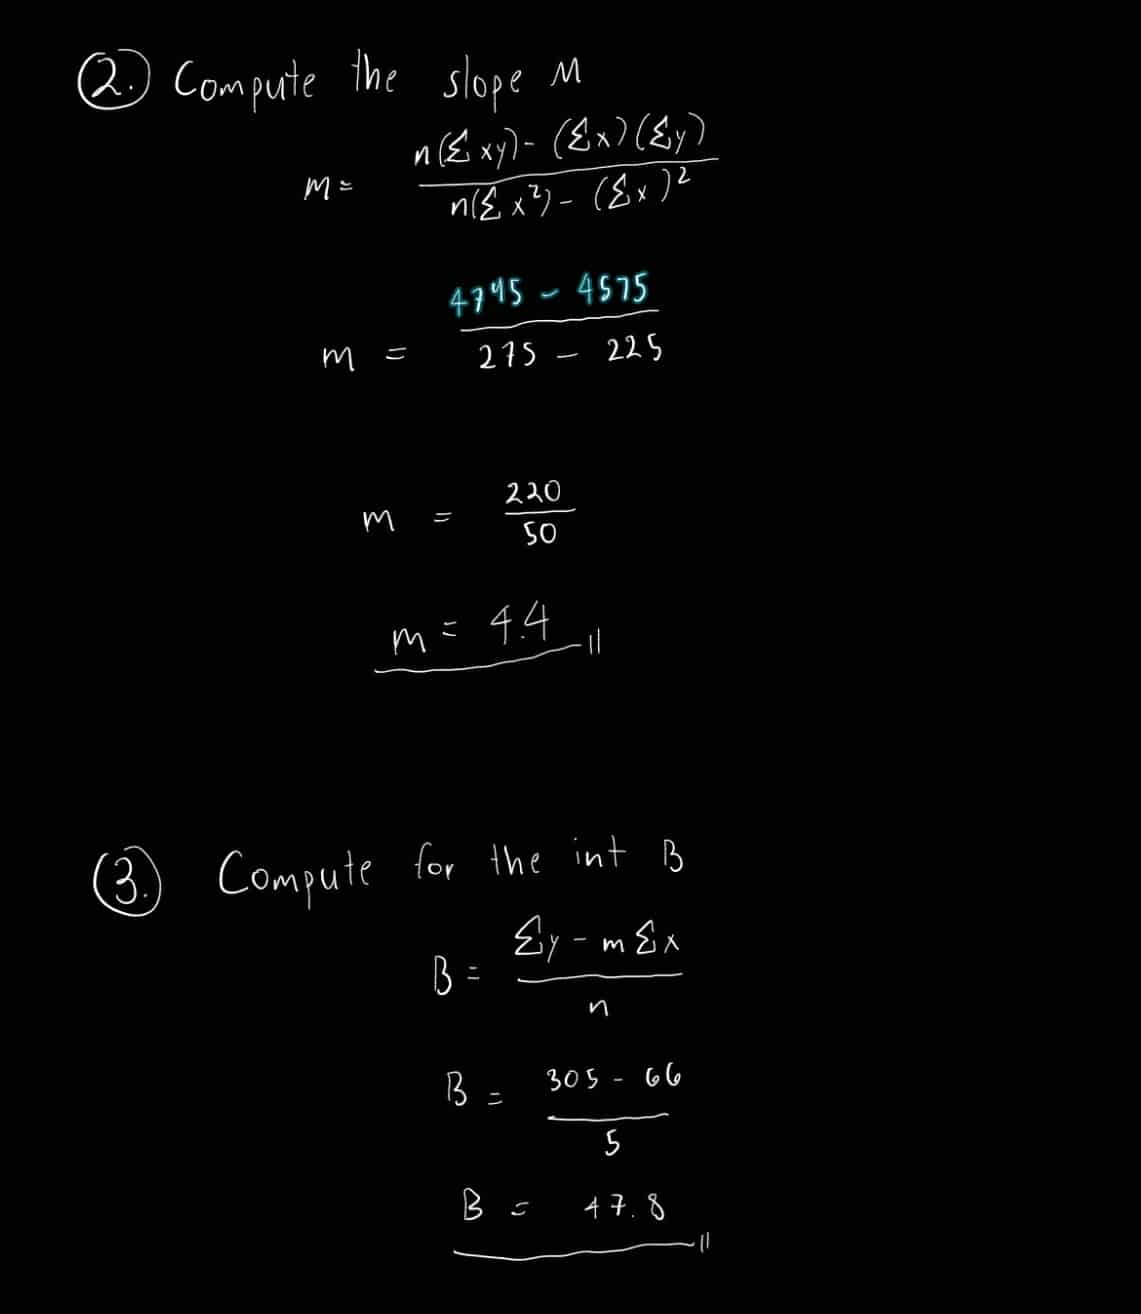 2. Compute the slope M
m = n(Σxy) - (Σx)(Σy)
n(Σx²) - (Σx)²
4795 - 4575
m = 275 - 225
m = 220
50
m = 4.4
3. Compute for the int B
B = Σy - mΣx
n
B = 305 - 66
5
B = 47.8